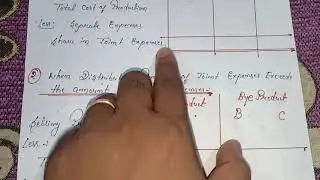 Total Cost of Production
Less: Seprate Expenses
Share in Joint Expenses
② When Distrib of Joint Expenses Exceeds
the amount Expenses:-
Bye Product
Selling B C
Less:-